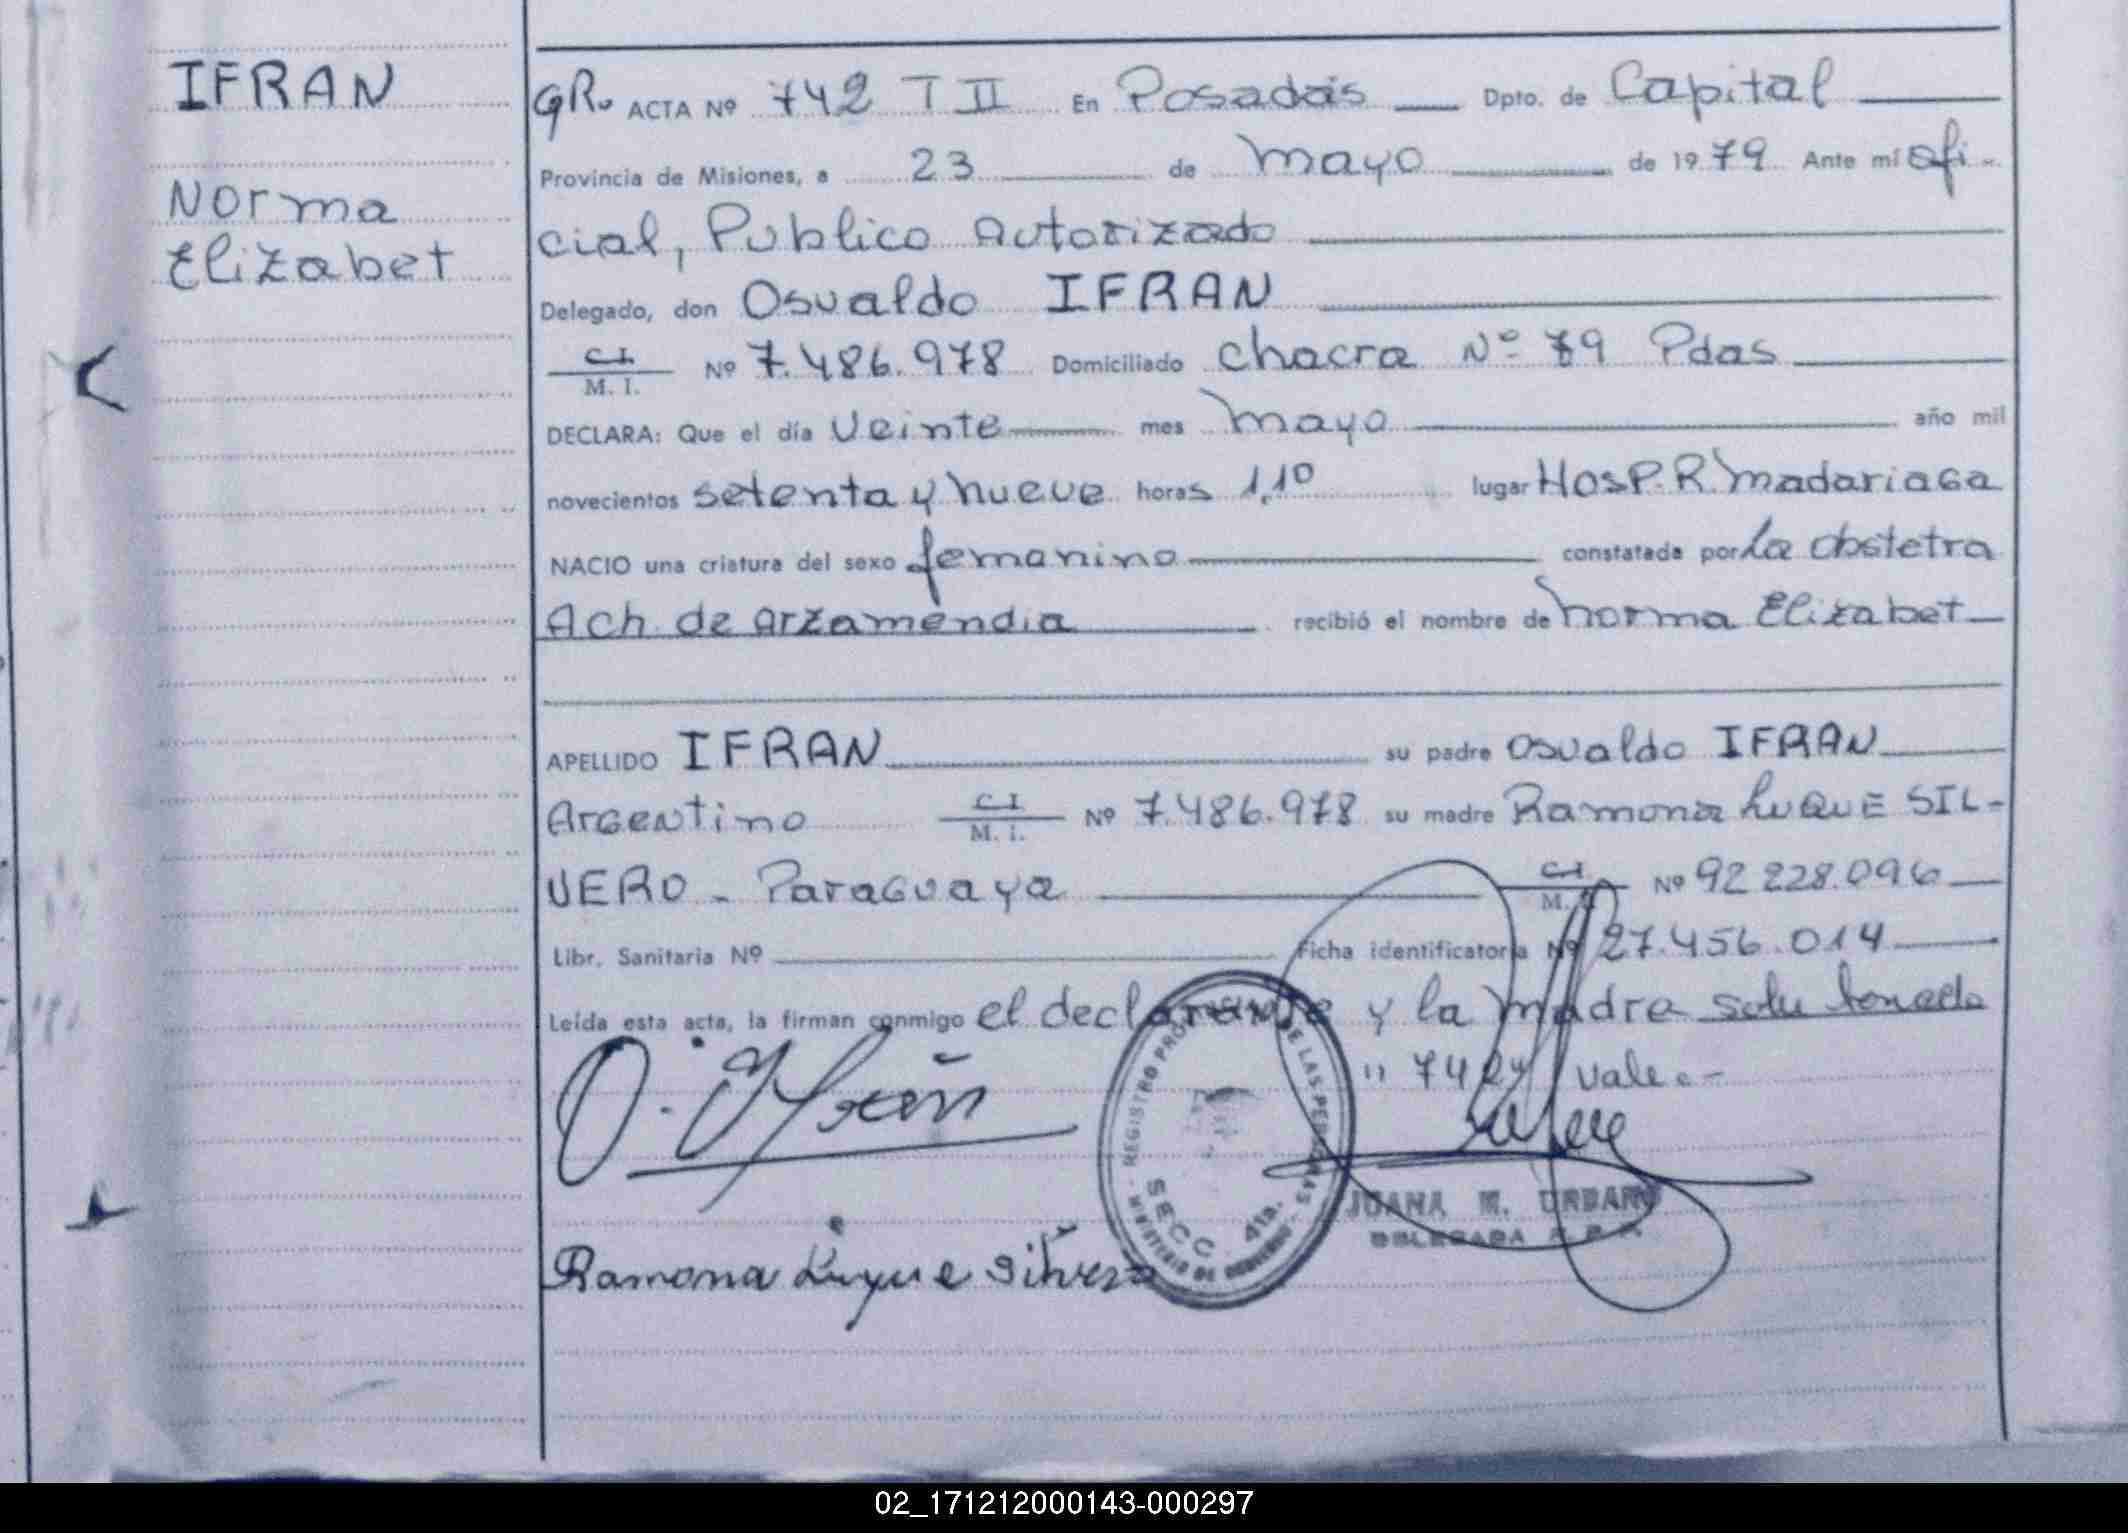 IFRAN
Norma
Elizabet
GR. ACTA Nº 742 T II En Posadas Dpto. de Capital
Provincia de Misiones, a 23 de mayo de 1979 Ante mí ofi-
cial, Publico Autorizado
Delegado, don Osvaldo IFRAN
C.I. M. I. Nº 7.486.978 Domiciliado chacra Nº 89 Pdas
DECLARA: Que el día veinte mes mayo año mil
novecientos setenta y nueve horas 1,10 lugar Hosp. R. Madariaga
NACIO una criatura del sexo femenino constatada por La obstetra
Ach. de Arzamendia recibió el nombre de Norma Elizabet
APELLIDO IFRAN su padre Osvaldo IFRAN
Argentino C.I. M. I. Nº 7.486.978 su madre Ramona Luque SIL-
VERO - Paraguaya C.I. M. Nº 92 228.096
Libr. Sanitaria Nº Ficha identificatoria Nº 27.456.014
Leída esta acta, la firman conmigo el declarante y la madre
" 742" vale.-
O. Ifrán
Ramona Luque Silvero
REGISTRO PROVINCIAL DE LAS PERSONAS
SECC. 4ta.
MINISTERIO DE GOBIERNO
JUANA M. URBANO
DELEGADA R. P. P.
02_171212000143-000297